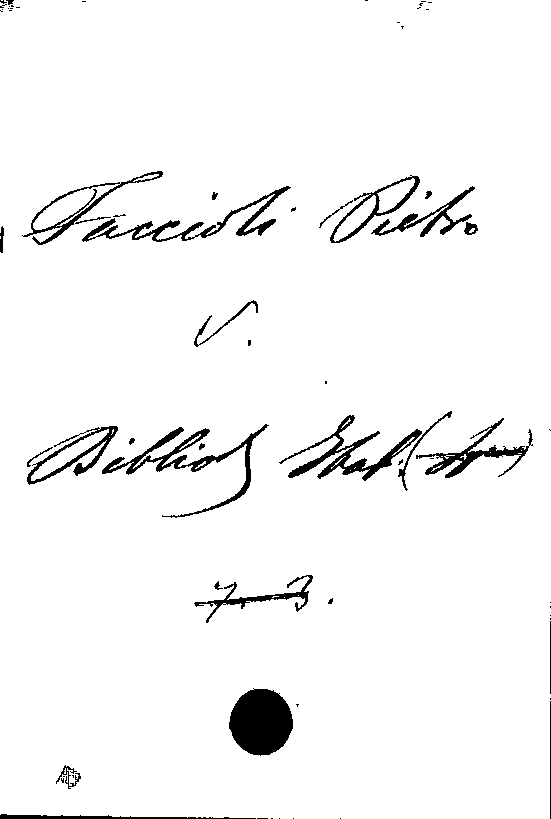 Faccioli Pietro
V.
Bibliot Ital. (
7. 3.